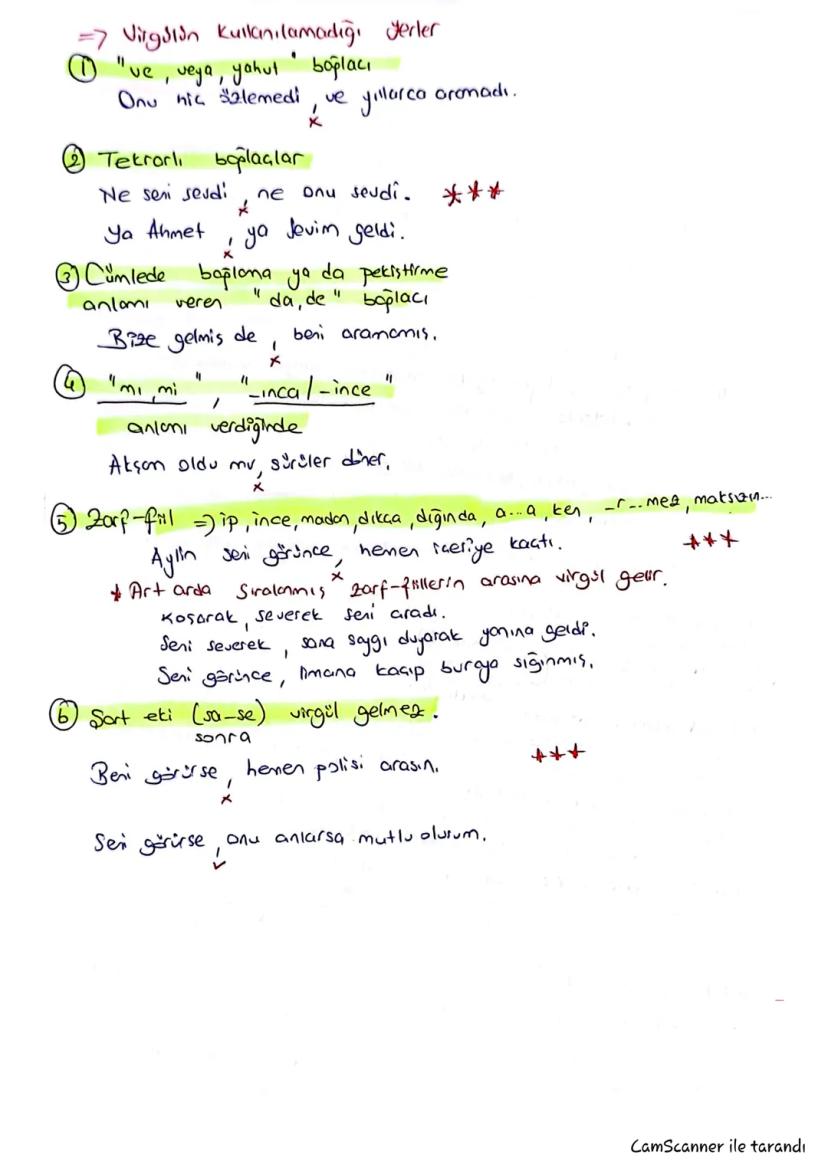 => Virgülün Kullanılamadığı Yerler
① "ve, veya, yahut" bağlacı
Onu hiç özlemedi, ve yıllarca aramadı.
x
② Tekrarlı bağlaçlar
Ne seni sevdi, ne onu sevdi. ***
x
Ya Ahmet, ya Sevim geldi.
x
③ Cümlede bağlama ya da pekiştirme
anlamı veren "da, de" bağlacı
Bize gelmiş de, beni aramamış.
x
④ "mı, mi", "-ınca/-ince"
anlamı verdiğinde
Akşam oldu mu, sürüler döner.
x
⑤ Zarf-fiil => ip, ince, madan, dıkça, dığında, a...a, ken, -r...mez, maksızın...
Aylin seni görünce, hemen içeriye kaçtı. ***
x
* Art arda sıralanmış zarf-fiillerin arasına virgül gelir.
Koşarak, severek seni aradı.
Seni severek, sana saygı duyarak yanına geldi.
Seni görünce, limana kaçıp buraya sığınmış.
⑥ Şart eki (sa-se) virgül gelmez.
sonra
***
Beni görürse, hemen polisi arasın.
x
Seni görürse, onu anlarsa mutlu olurum.
✓
CamScanner ile tarandı